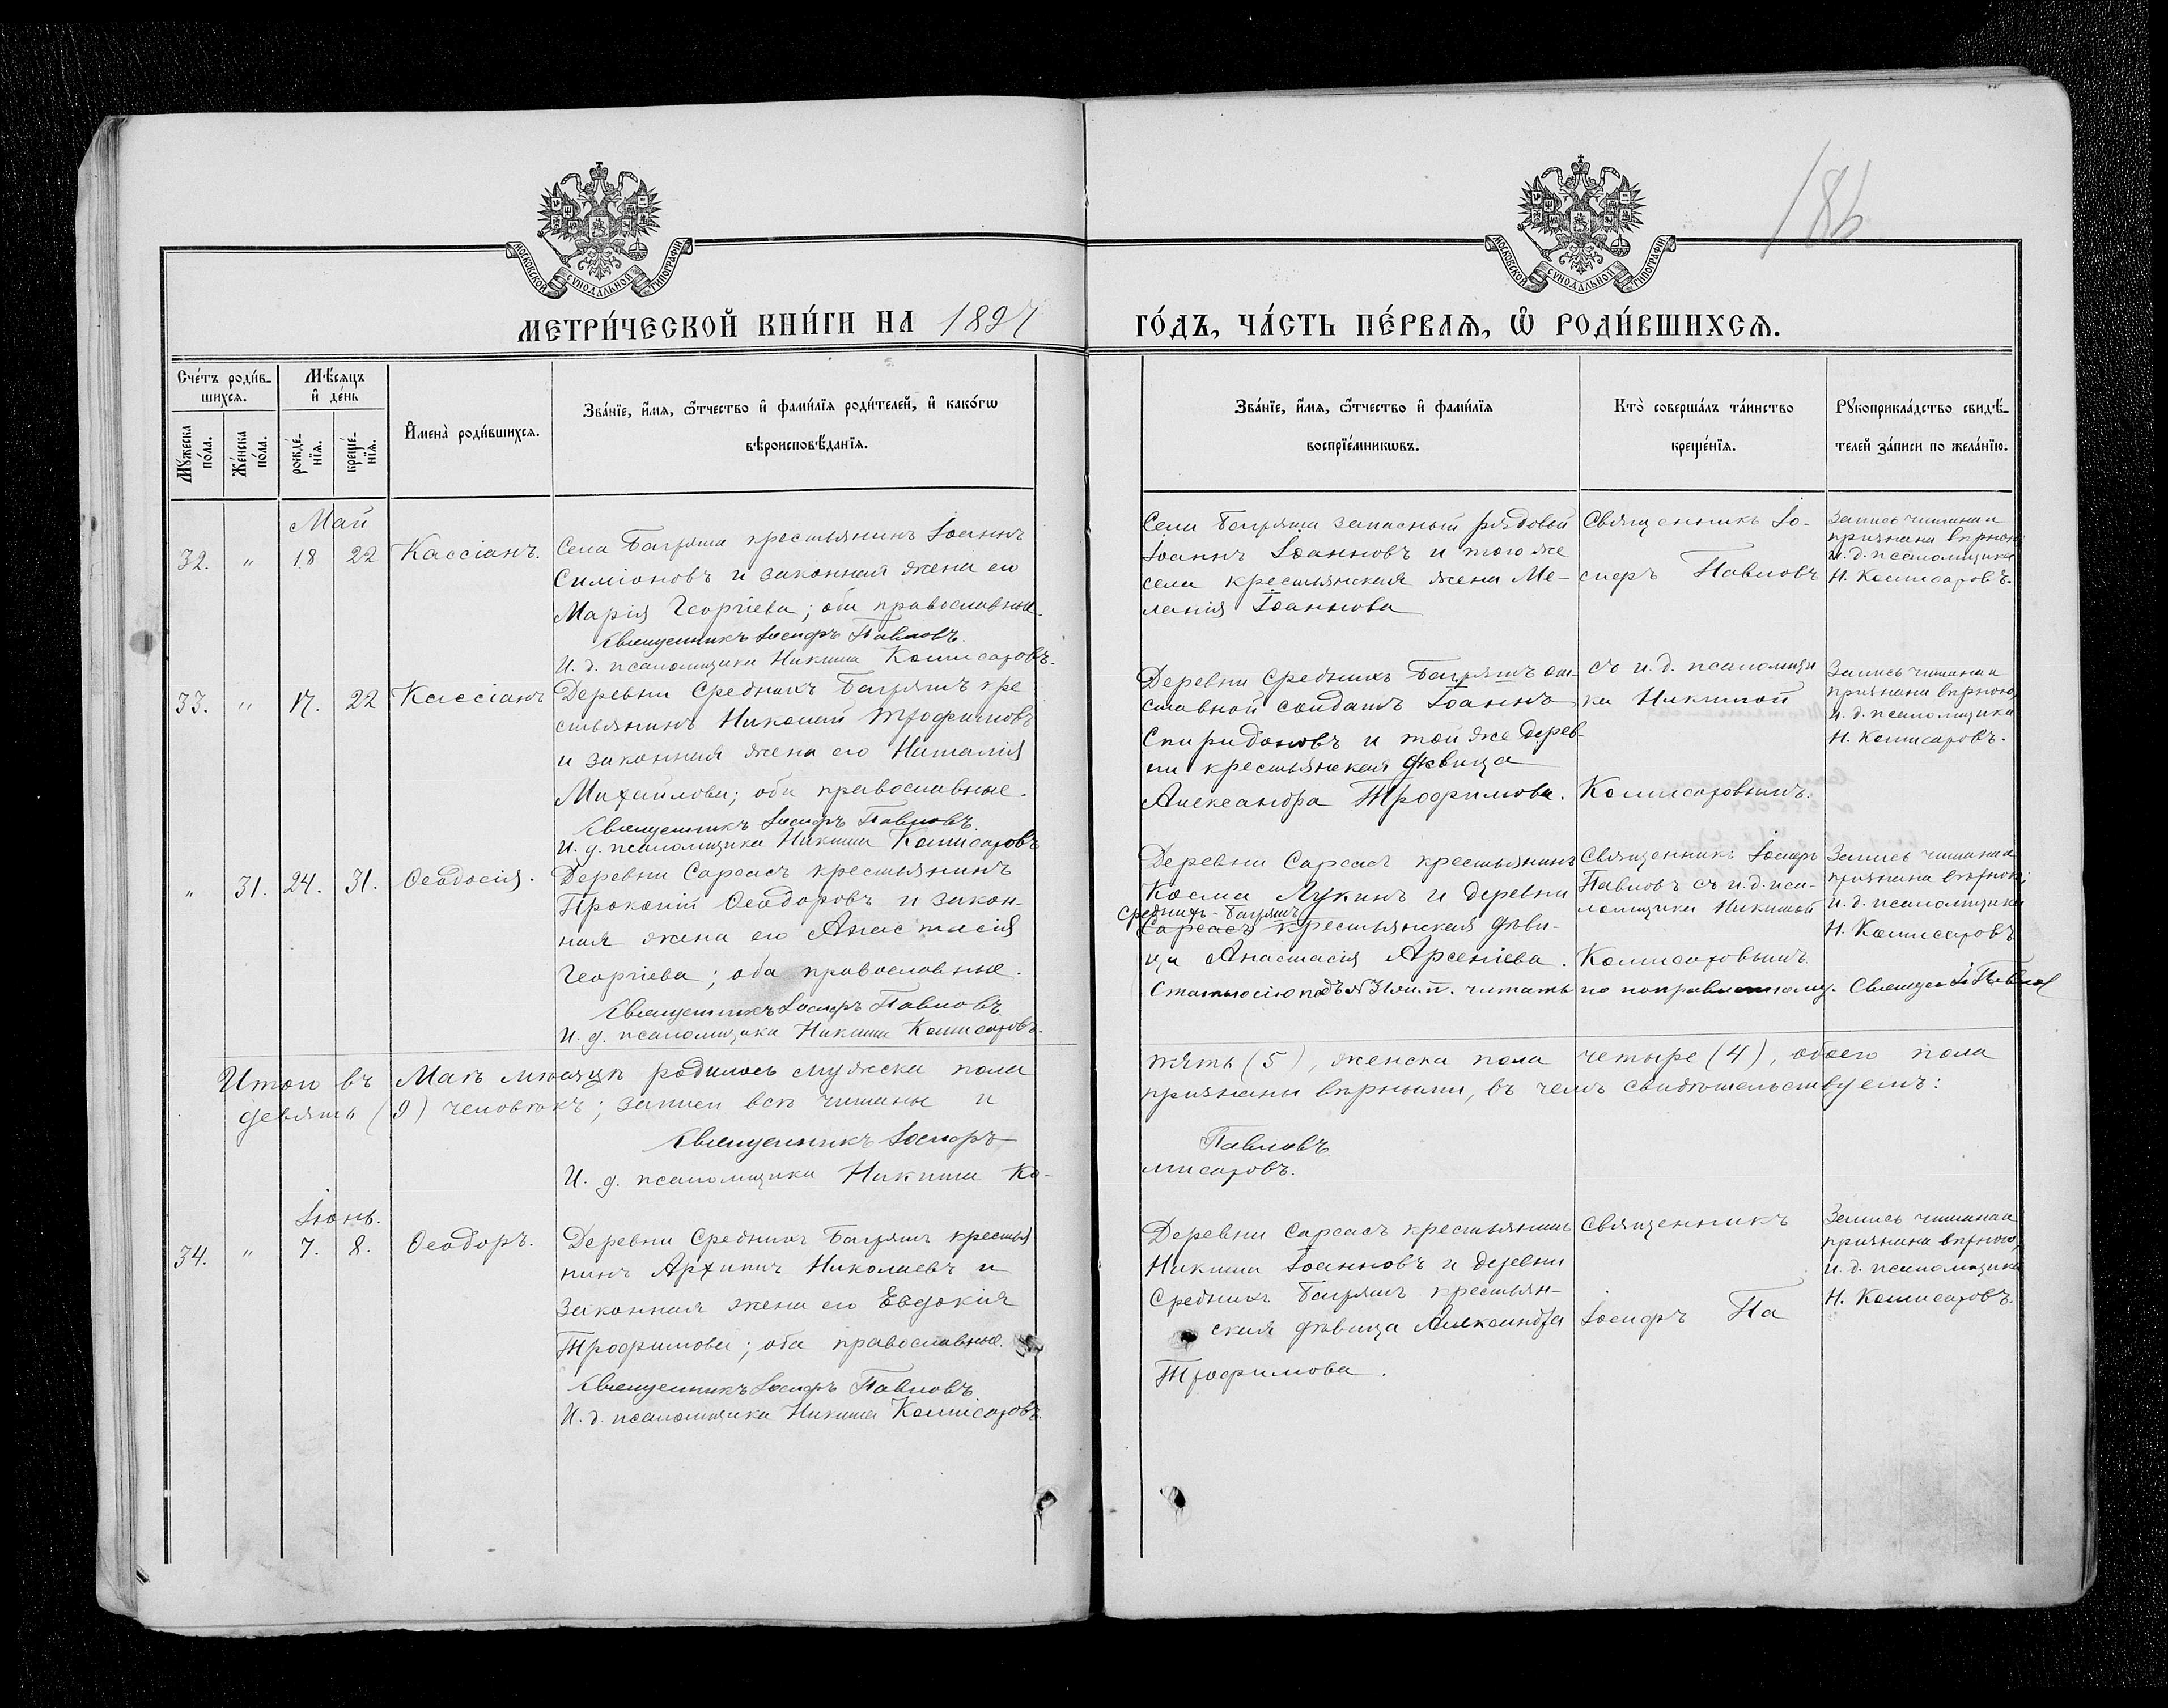 186
МОСКОВСКОЙ СѴНОДАЛЬНОЙ ТИПОГРАФІИ
МОСКОВСКОЙ СѴНОДАЛЬНОЙ ТИПОГРАФІИ
МЕТРИ́ЧЕСКОЙ КНИ́ГИ НА 1897
ГО́ДЪ, ЧА́СТЬ ПЕ́РВАѦ, Ѽ РОДИ́ВШИХСѦ.
Сче́тъ роди́в-
шихсѧ.
Мѣ́сѧцъ
и҆ де́нь
Мꙋ́жеска по́ла.
Же́нска по́ла.
рожде́-
нїѧ.
креще́-
нїѧ.
И҆мена̀ роди́вшихсѧ.
Зва́нїе, и҆́мѧ, ѻ҆́тчество и҆ фами́лїѧ роди́телей, и҆ како́гѡ
вѣроисповѣ́данїѧ.
Зва́нїе, и҆́мѧ, ѻ҆́тчество и҆ фами́лїѧ
воспрїе́мникѡвъ.
Кто̀ соверша́лъ та́инство
креще́нїѧ.
Рꙋкоприкла́дство свидѣ́-
телей за́писи по жела́нїю.
Май
32. " 18 22 Кассіанъ.
Села Багряша крестьянинъ Іоаннъ
Симіоновъ и законная жена его
Марія Георгіева; оба православные.
Священникъ Іосифъ Павловъ.
И. д. псаломщика Никита Комисаровъ.
Села Багряша запасный рядовой
Іоаннъ Іоанновъ и того же
села крестьянская жена Ме-
ланія Іоаннова
Священникъ Іо-
сифъ Павловъ
Запись читана и
признана вѣрною;
и. д. псаломщика
Н. Комисаровъ.
33. " 17. 22 Кассіанъ
Деревни Среднихъ Багряшъ кре
стьянинъ Николай Трофимовъ
и законная жена его Наталія
Михайлова; оба православные.
Священникъ Іосифъ Павловъ.
И. д. псаломщика Никита Комисаровъ
Деревни Среднихъ Багряшъ от-
ставной солдатъ Іоаннъ
Спиридоновъ и той же дерев-
ни крестьянская дѣвица
Александра Трофимова.
съ и. д. псаломщи
ка Никитой
Комисаровымъ.
Запись читана и
признана вѣрною,
и. д. псаломщика
Н. Комисаровъ.
" 31. 24. 31. Ѳеодосія.
Деревни Сарсасъ крестьянинъ
Прокопій Ѳеодоровъ и закон-
ная жена его Анастасія
Георгіева; оба православные.
Священникъ Іосифъ Павловъ
И. д. псаломщика Никита Комисаровъ.
Деревни Сарсасъ крестьянинъ
Косма Лукинъ и деревни
Среднихъ-Багряшъ
Сарсасъ крестьянская дѣви-
ца Анастасія Арсеніева.
Священникъ Іосифъ
Павловъ съ и. д. пса-
ломщика Никитой
Комисаровымъ.
Запись читана и
признана вѣрною;
и. д. псаломщика
Н. Комисаровъ
Статью сію подъ № 31 ж. п. читать по поправленному. Священ. І. Павлов
Итого въ Маѣ мѣсяцѣ родилось мужска пола
пять (5), женска пола четыре (4), обоего пола
девять (9) человѣкъ; записи всѣ читаны и
признаны вѣрными, въ чемъ свидѣтельствуемъ:
Священникъ Іосифъ
Павловъ.
И. д. псаломщика Никита Ко-
мисаровъ.
Іюнь.
34. " 7. 8. Ѳеодоръ.
Деревни Среднихъ Багряшъ крестья
нинъ Архиппъ Николаевъ и
законная жена его Евдокія
Трофимова; оба православные.
Священникъ Іосифъ Павловъ.
И. д. псаломщика Никита Комисаровъ.
Деревни Сарсасъ крестьянинъ
Никита Іоанновъ и деревни
Среднихъ Багряшъ крестьян-
ская дѣвица Александра
Трофимова.
Священникъ
Іосифъ Па
Запись читана и
признана вѣрною,
и. д. псаломщика
Н. Комисаровъ.